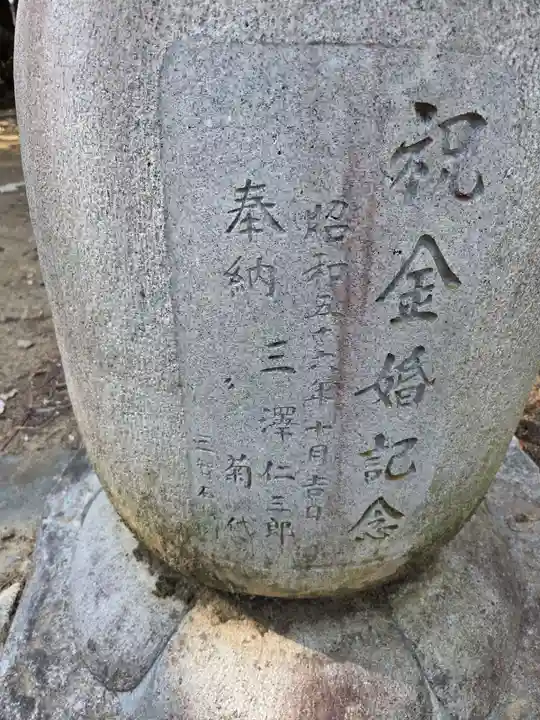 祝金婚記念
昭和五十六年十月吉日
奉納 三澤仁三郎
〃 菊代